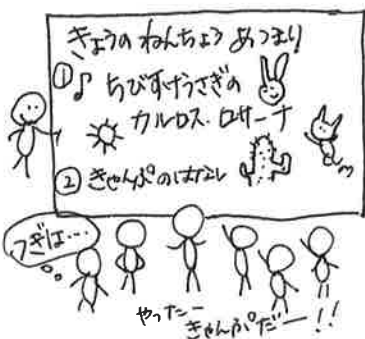 きょうの ねんちょう あつまり
① ♪ ちびすけうさぎの
カルロス・ロサーナ
② きゃんぷのはなし
つぎは…
やったー
きゃんぷだー!!